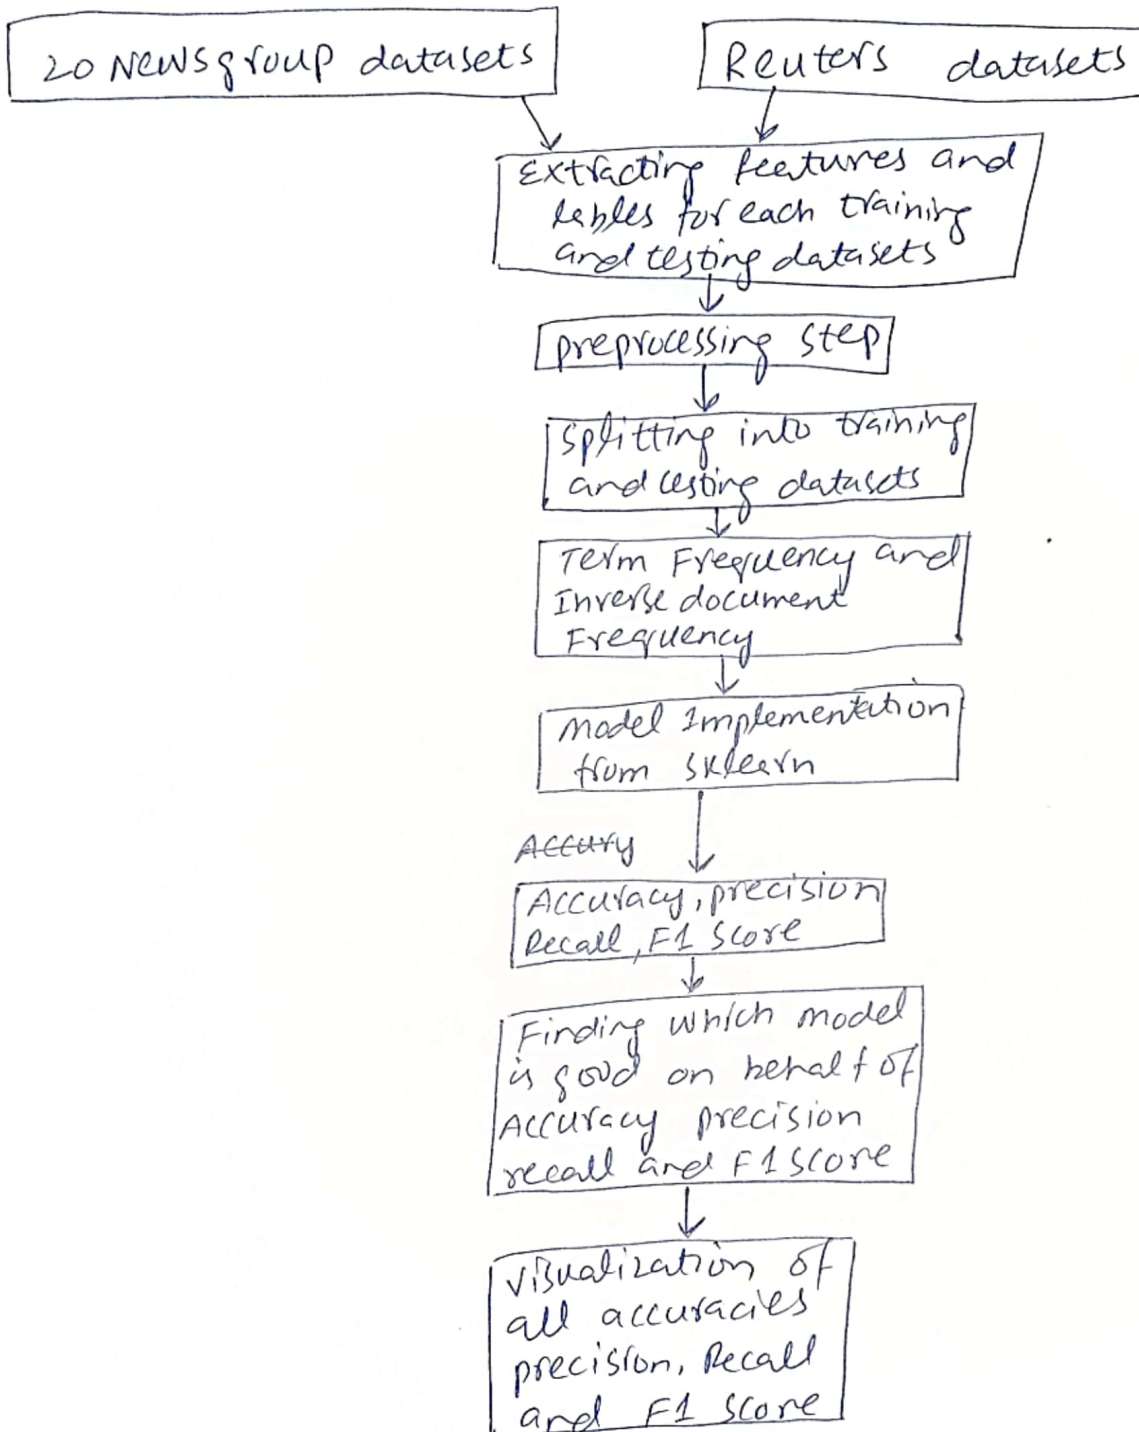 20 Newsgroup datasets
Reuters datasets
Extracting features and
lables for each training
and testing datasets
preprocessing step
Splitting into training
and testing datasets
Term Frequency and
Inverse document
Frequency
Model Implementation
from sklearn
Accury
Accuracy, precision
Recall, F1 Score
Finding which model
is good on behalf of
Accuracy precision
recall and F1 Score
visualization of
all accuracies
precision, Recall
and F1 Score